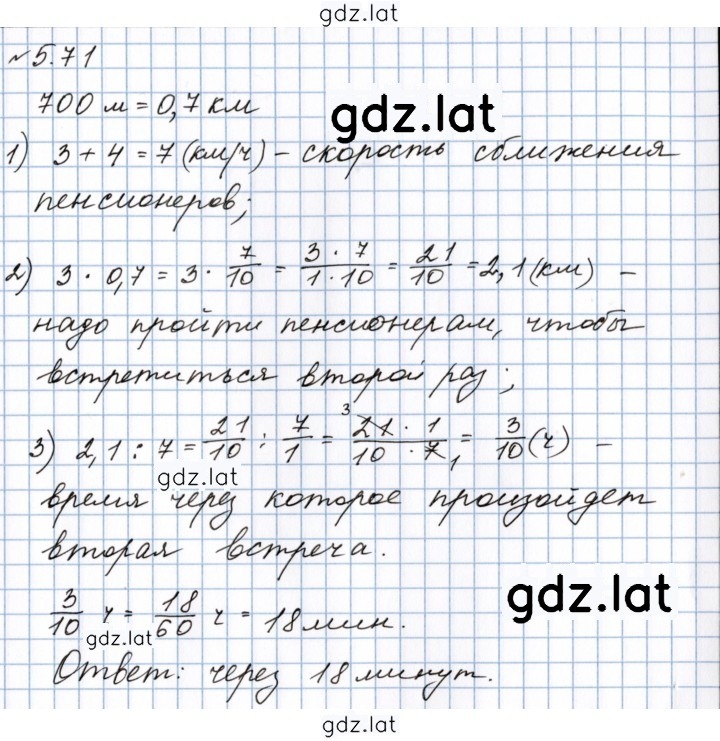 gdz.lat
№5.71
700 м = 0,7 км
gdz.lat
1) 3 + 4 = 7 (км/ч) – скорость сближения
пенсионеров;
2) 3 · 0,7 = 3 · 7/10 = 3 · 7/1 · 10 = 21/10 = 2,1 (км) –
надо пройти пенсионерам, чтобы
встретиться второй раз;
3) 2,1 : 7 = 21/10 : 7/1 = 21 3 · 1/10 · 7 1 = 3/10 (ч) –
gdz.lat
время через которое произойдет
вторая встреча.
3/10 ч = 18/60 ч = 18 мин.
gdz.lat
gdz.lat
Ответ: через 18 минут.
gdz.lat